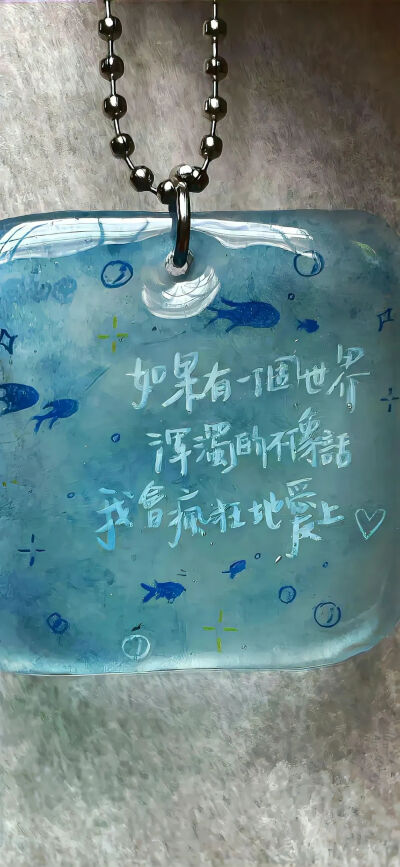 如果有一個世界
渾濁的不像話
我會瘋狂地愛上♡